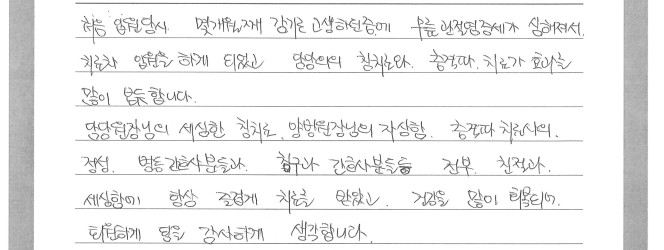 처음 입원당시. 몇개월째 감기로 고생하던중에 무릎 관절염증세가 심해져서.
치료차 입원을 하게 되었고 담당의의 침치료와. 충격파. 치료가 효과를
많이 본듯합니다.
담당원장님의 세심한 침치료. 양방원장님의 자상함. 충격파 치료사의.
정성. 병동간호사분들과. 침구과 간호사분들등 전부. 친절과.
세심함에 항상 즐겁게 치료를 받았고. 건강을 많이 회복되어.
퇴원하게 됨을 감사하게 생각합니다.